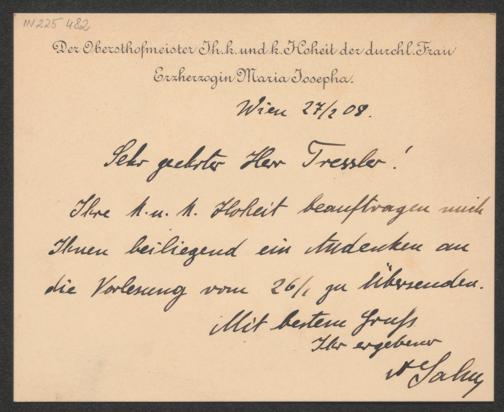 IN 225 482
Der Obersthofmeister Ih. k. und k. Hoheit der durchl. Frau
Erzherzogin Maria Josepha.
Wien 27/2 08.
Sehr geehrter Herr Tressler!
Ihre k. u. k. Hoheit beauftragen mich
Ihnen beiliegend ein Andenken an
die Vorlesung vom 26/ zu übersenden.
Mit bestem Gruß
Ihr ergebener